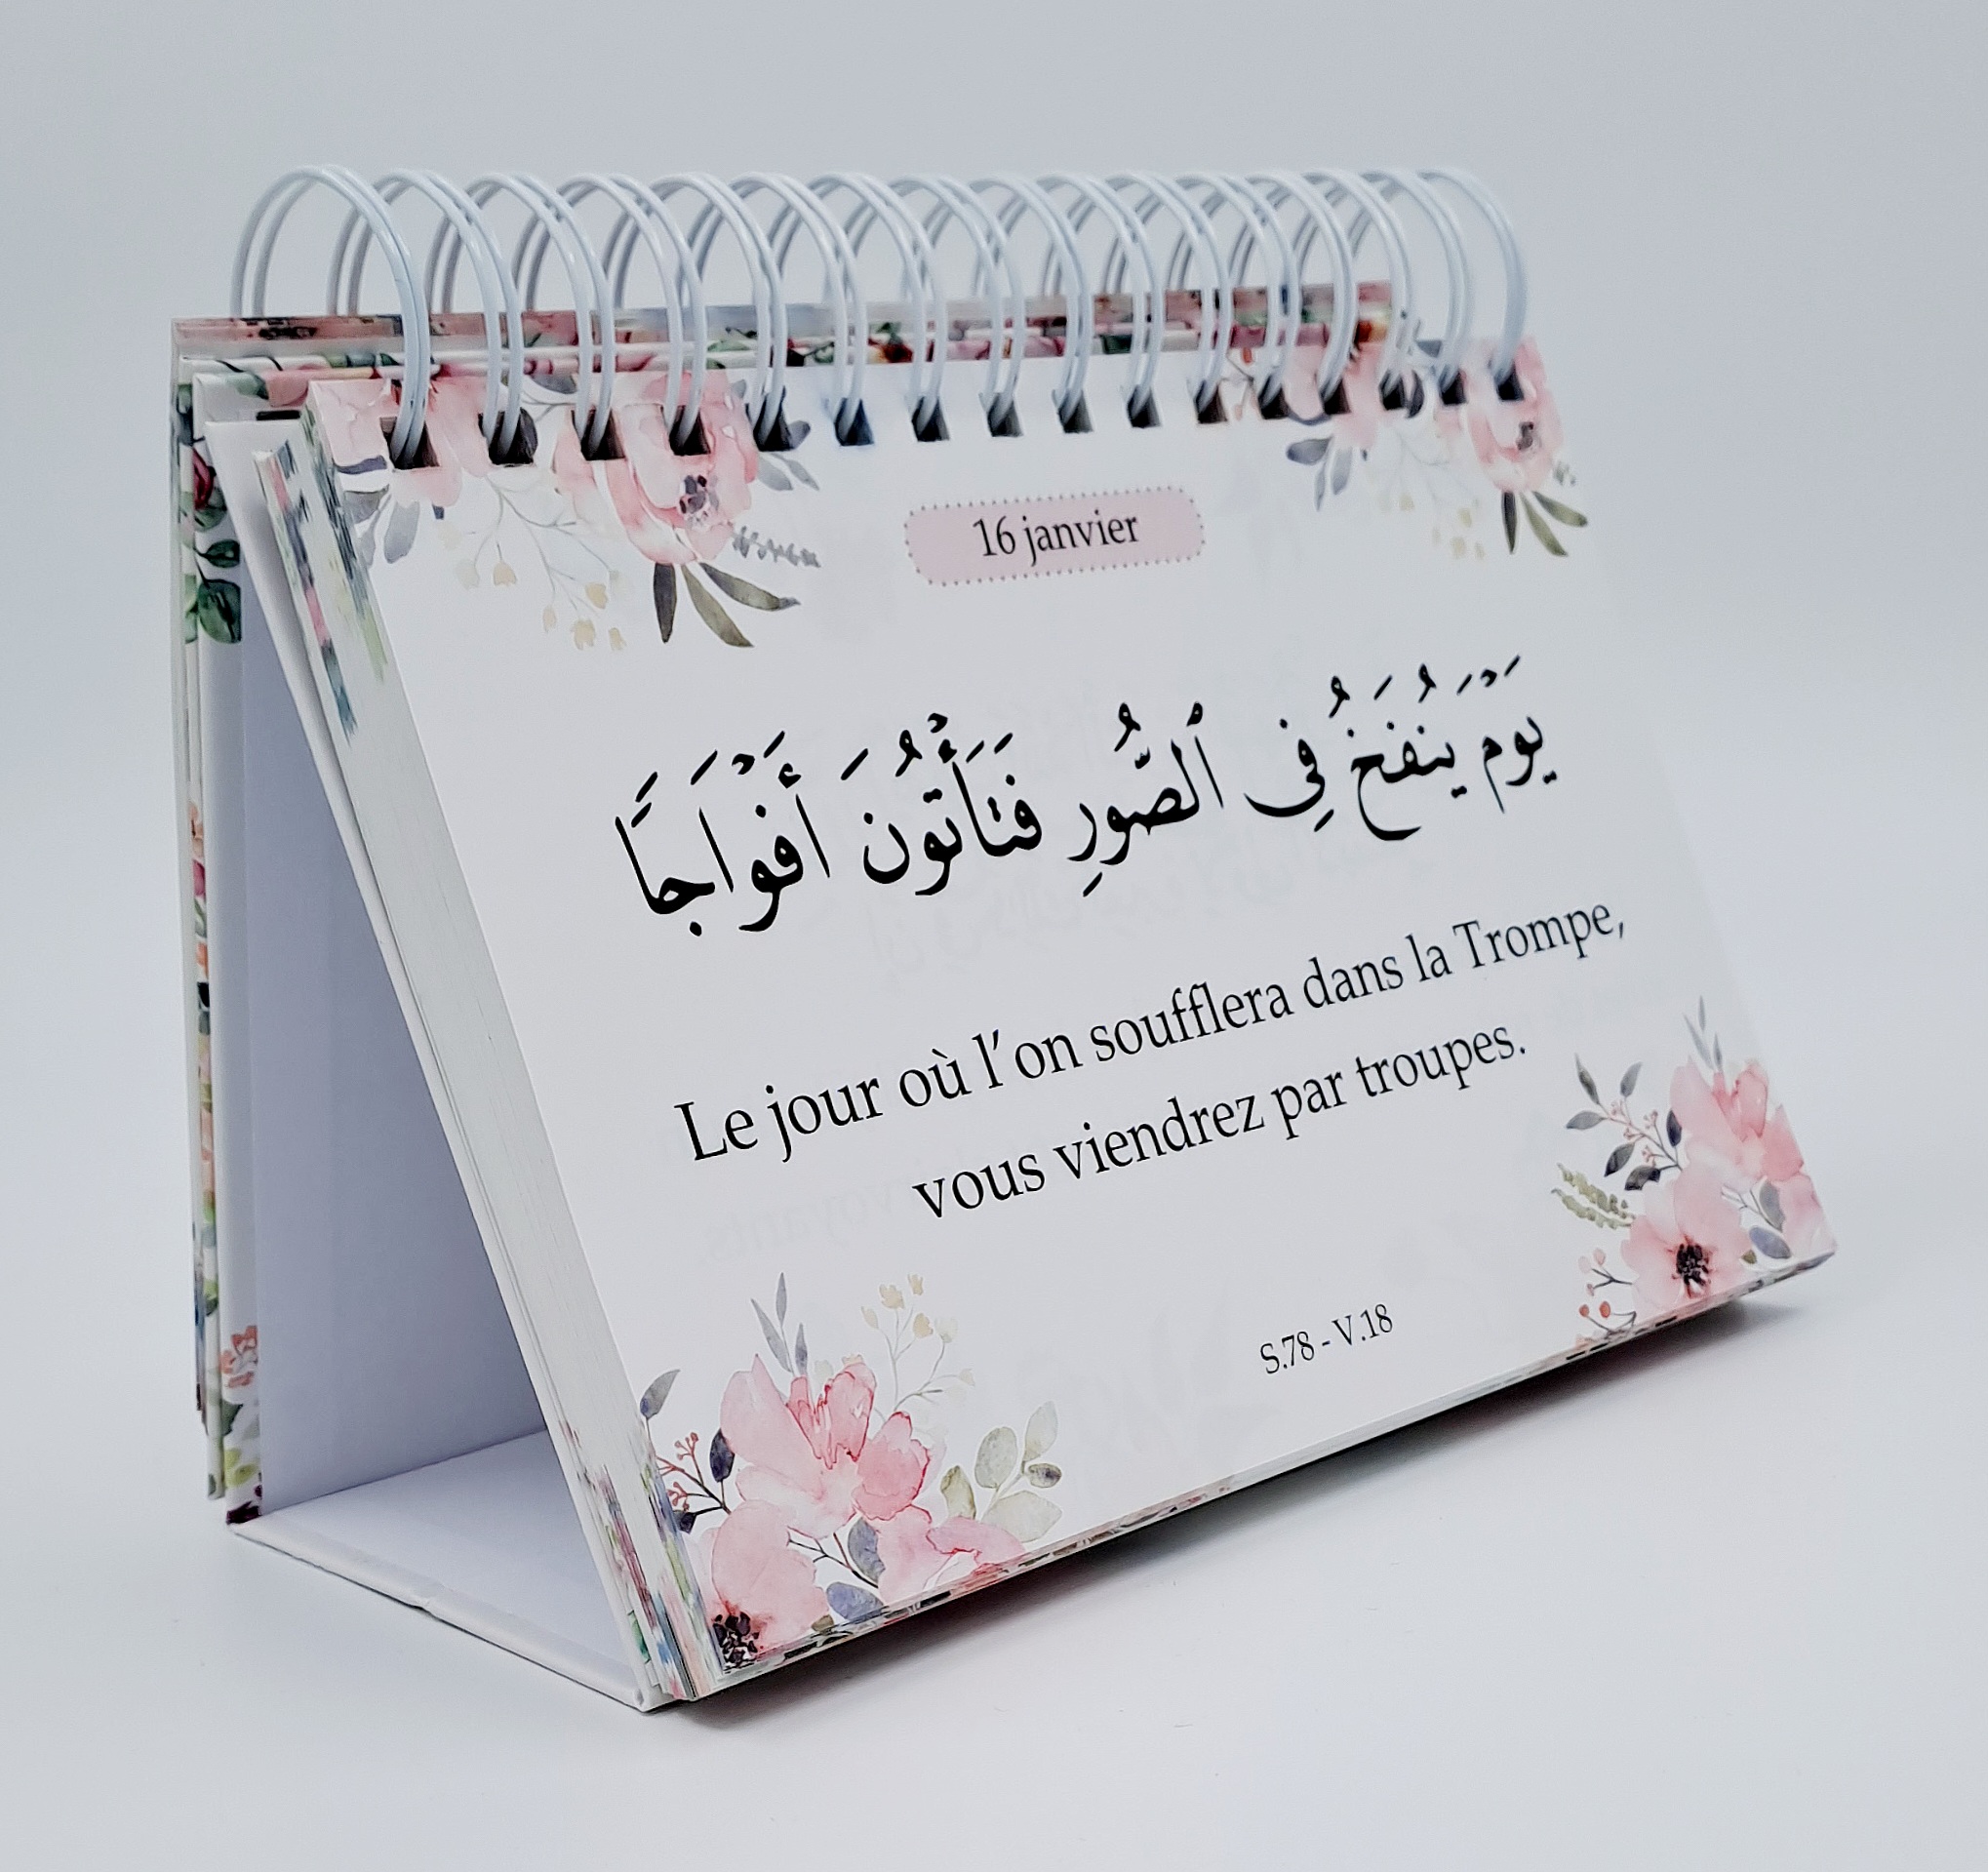 16 janvier
يَوْمَ يُنفَخُ فِى ٱلصُّورِ فَتَأْتُونَ أَفْوَاجًا
Le jour où l'on soufflera dans la Trompe,
vous viendrez par troupes.
S.78 - V.18